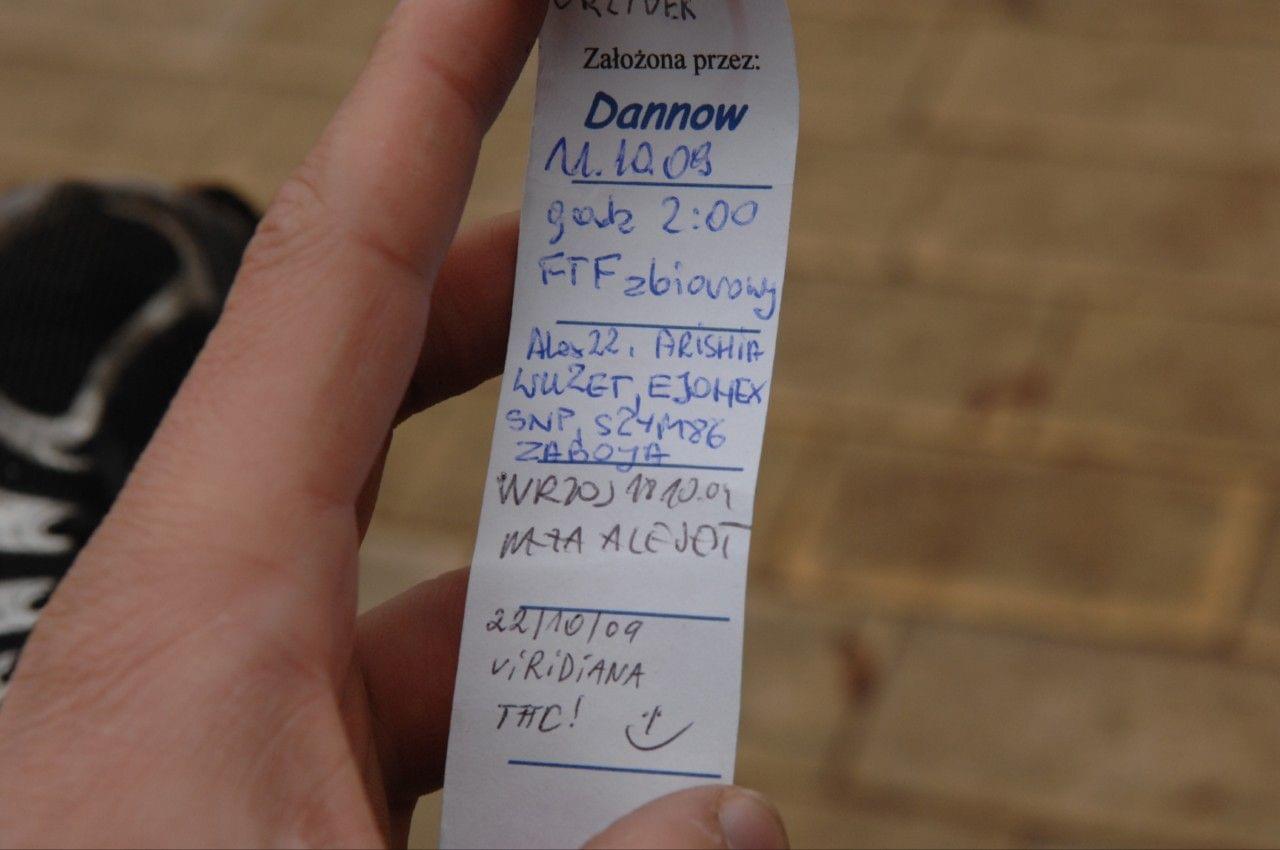 Założona przez:
Dannow
11.10.09
godz 2:00
FTF zbiorowy
Alex22, ARISHIA
WUZET, EJOMEX
SNP, SZYM86
ZABOJA
18.10.09
22/10/09
ViRiDiANA
TFTC!